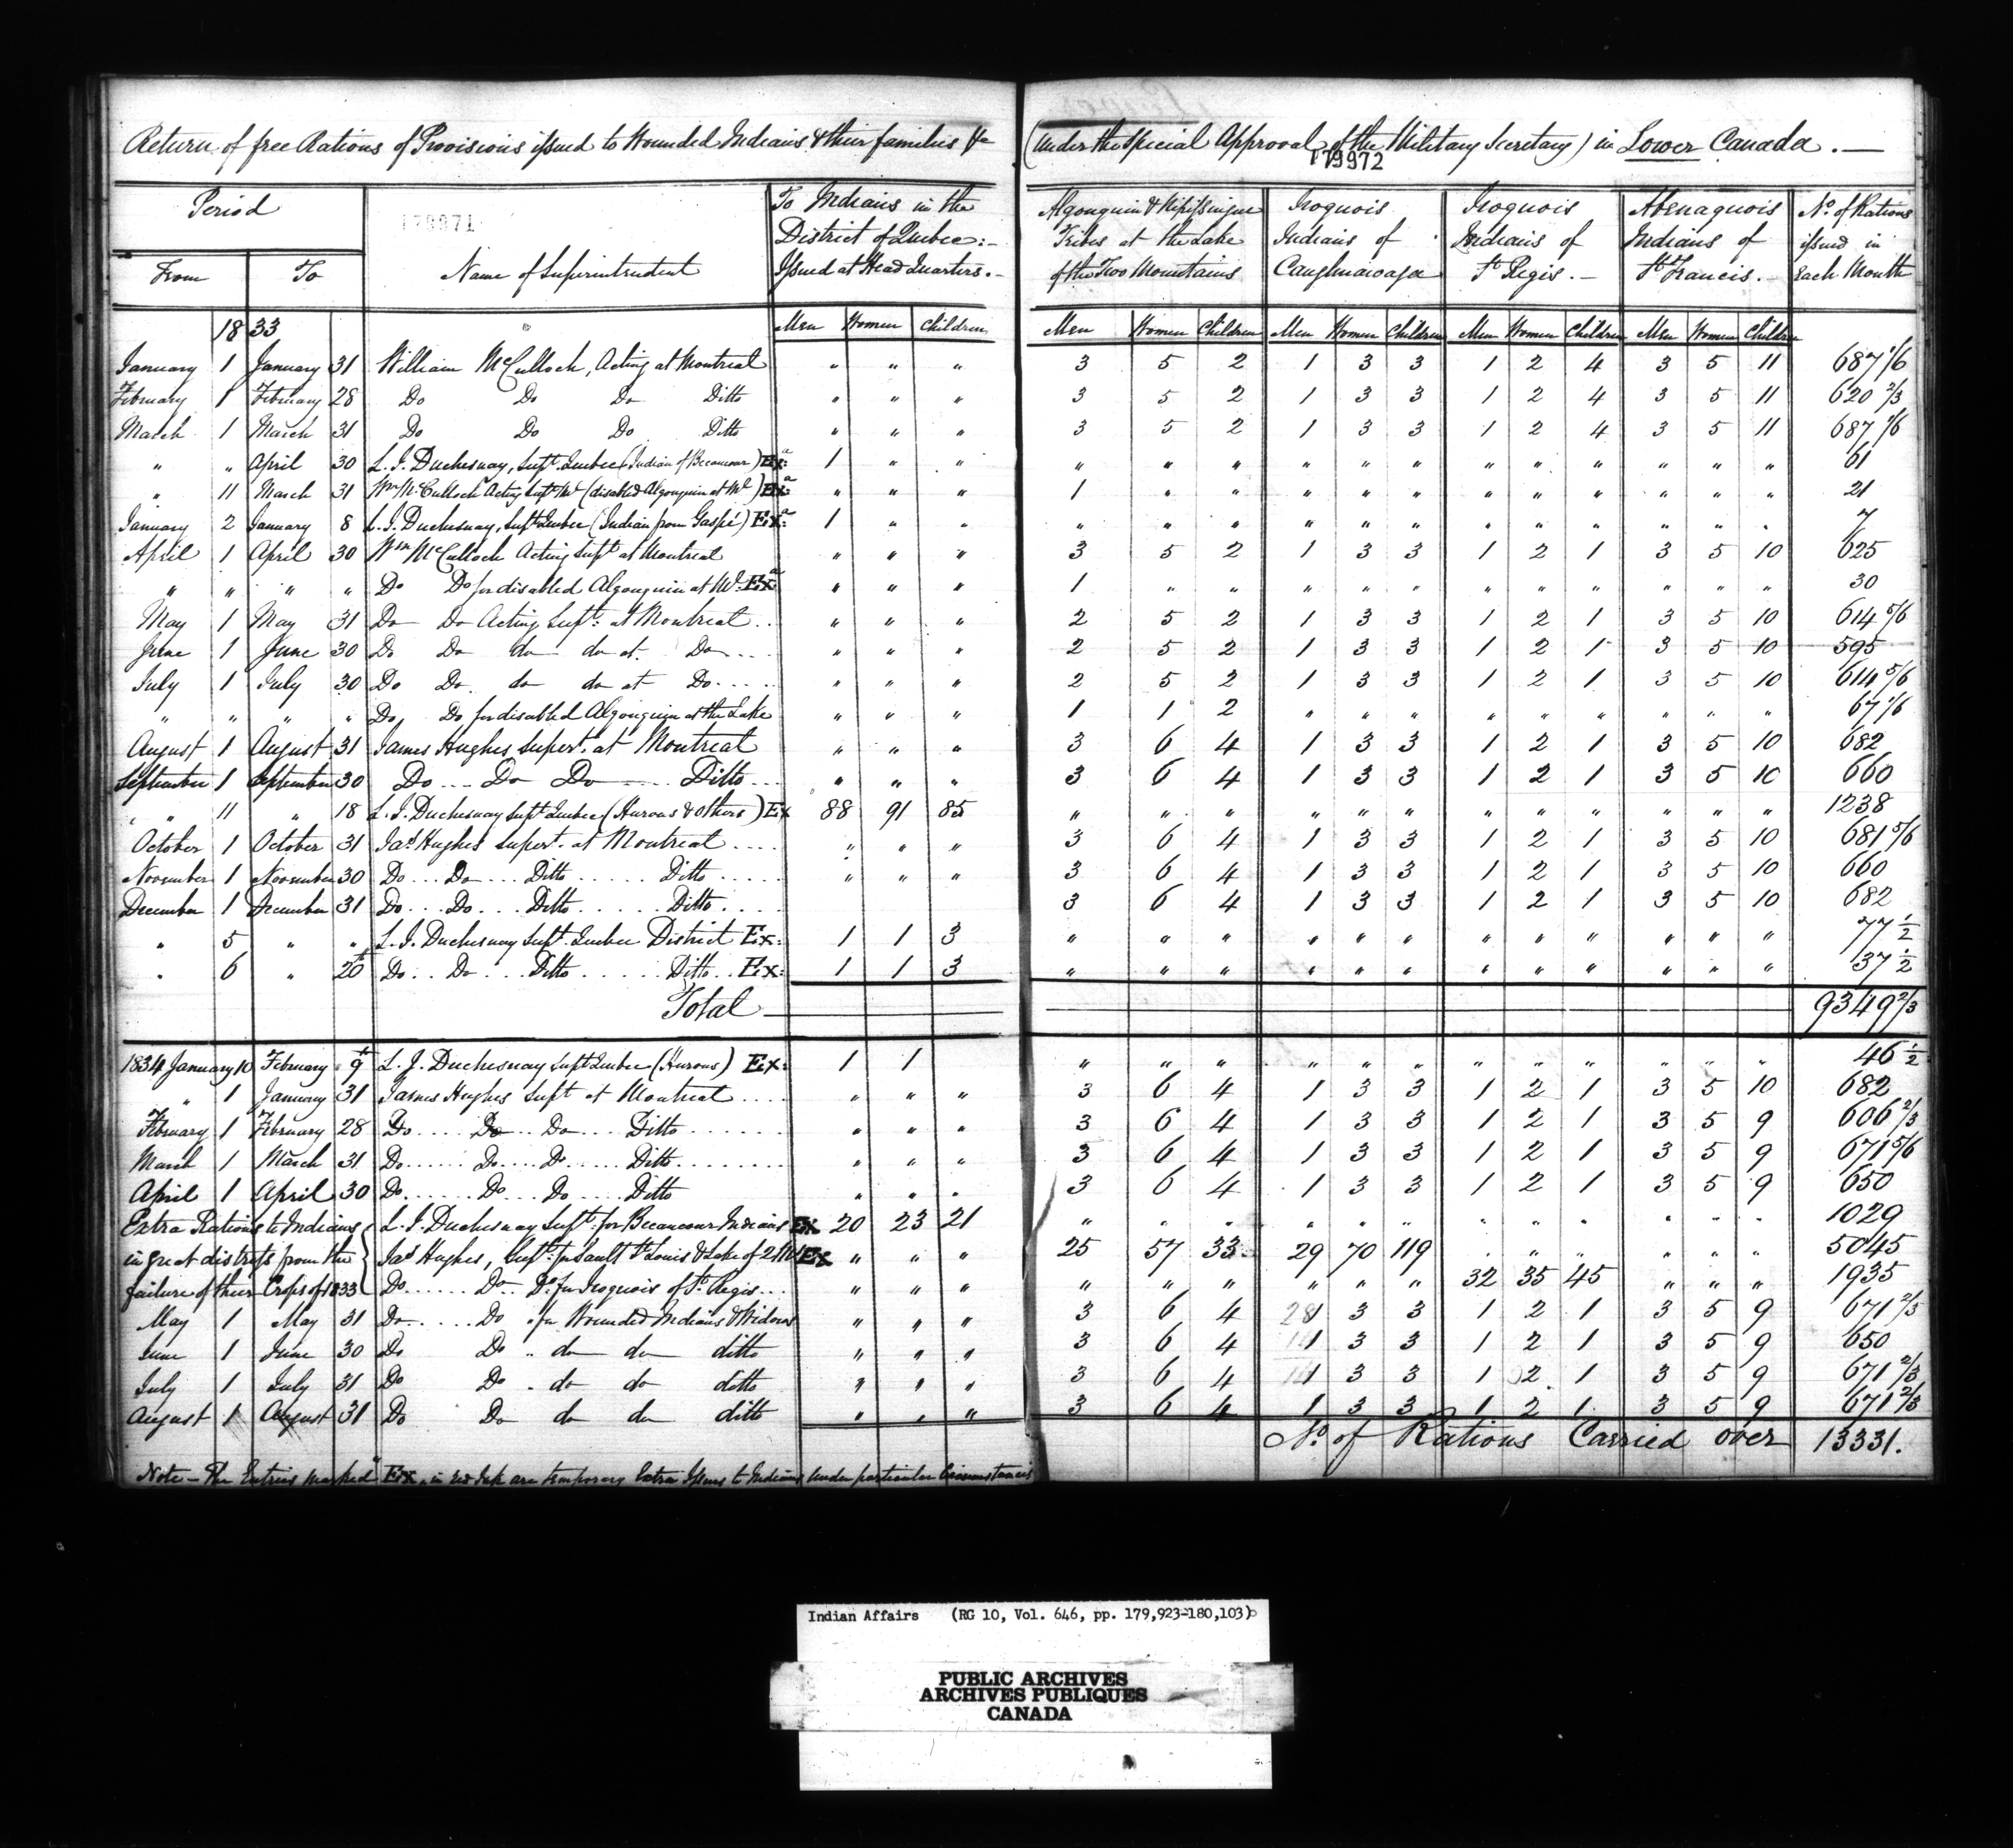 Return of free Rations of Provisions issued to Wounded Indians & their families &c (under the Special Approval of the Military Secretary) in Lower Canada . —
179972
Period 179971 To Indians in the Algonquin & Nipissingue Iroquois Iroquois Abenaquois No. of Rations
District of Quebec:- Tribes at the Lake Indians of Indians of Indians of issued in
From To Name of Superintendent Issued at Head Quarters.- of the Two Mountains Caughnawaga St. Regis.- St. Francis.- Each Month
1833 Men Women Children Men Women Children Men Women Children Men Women Children Men Women Children
January 1 January 31 William McCulloch, Acting at Montreal " " " 3 5 2 1 3 3 1 2 4 3 5 11 687 1/6
February 1 February 28 Do Do Do Ditto " " " 3 5 2 1 3 3 1 2 4 3 5 11 620 2/3
March 1 March 31 Do Do Do Ditto " " " 3 5 2 1 3 3 1 2 4 3 5 11 687 1/6
" " April 30 L. J. Duchesnay, Supt. Quebec (Indian of Becancour) Exa: 1 " " " " " " " " " " " " " " 61
" 11 March 31 Wm McCulloch Acting Supt Ml (disabled Algonquin at Ml) Exa: " " " 1 " " " " " " " " " " " 21
January 2 January 8 L. J. Duchesnay, Supt Quebec (Indian from Gaspé) Exa: 1 " " " " " " " " " " " " " " 7
April 1 April 30 Wm McCulloch Acting Supt at Montreal " " " 3 5 2 1 3 3 1 2 1 3 5 10 625
" " " " Do Do for disabled Algonquin at Ml. Exa: " " " 1 " " " " " " " " " " " 30
May 1 May 31 Do Do Acting Supt. at Montreal . . " " " 2 5 2 1 3 3 1 2 1 3 5 10 614 5/6
June 1 June 30 Do Do do do at Do . . . " " " 2 5 2 1 3 3 1 2 1 3 5 10 595
July 1 July 30 Do Do do do at Do . . . . " " " 2 5 2 1 3 3 1 2 1 3 5 10 614 5/6
" " " " Do, Do for disabled Algonquin at the Lake " " " 1 1 2 " " " " " " " " " 67 1/6
August 1 August 31 James Hughes Supert. at Montreal " " " 3 6 4 1 3 3 1 2 1 3 5 10 682
September 1 September 30 Do ... Do Do ... Ditto ... " " " 3 6 4 1 3 3 1 2 1 3 5 10 660
" 11 " 18 L. J. Duchesnay Supt Quebec (Hurons & others) Ex 88 91 85 " " " " " " " " " " " " 1238
October 1 October 31 Jas Hughes Supert. at Montreal .... " " " 3 6 4 1 3 3 1 2 1 3 5 10 681 5/6
November 1 November 30 Do ... Do ... Ditto ..... Ditto ..... " " " 3 6 4 1 3 3 1 2 1 3 5 10 660
December 1 December 31 Do ... Do ... Ditto ..... Ditto .... 3 6 4 1 3 3 1 2 1 3 5 10 682
" 5 " " L. J. Duchesnay Supt. Quebec District Ex: 1 1 3 " " " " " " " " " " " " 77 1/2
" 6 " 20th Do .. Do ... Ditto ..... Ditto .. Ex: 1 1 3 " " " " " " " " " " " " 37 1/2
Total 9349 2/3
1834 January 10 February 9th L. J. Duchesnay Supt Quebec (Hurons) Ex: 1 1 " " " " " " " " " " " " 46 1/2
" 1 January 31 James Hughes Supt at Montreal .... " " " 3 6 4 1 3 3 1 2 1 3 5 10 682
February 1 February 28 Do .... Do ... Do .... Ditto ....... " " " 3 6 4 1 3 3 1 2 1 3 5 9 606 2/3
March 1 March 31 Do ...... Do .... Do ..... Ditto ........ " " " 3 6 4 1 3 3 1 2 1 3 5 9 671 5/6
April 1 April 30 Do ...... Do ... Do .... Ditto " " " 3 6 4 1 3 3 1 2 1 3 5 9 650
Extra Rations to Indians L. J. Duchesnay Supt. for Becancour Indians Ex 20 23 21 " " " " " " " " " " " " 1029
in great distress from the Jas Hughes, Supt. for Sault St Louis & Lake of 2 Mts Ex " " " 25 57 33 29 70 119 " " " " " " 5045
failure of their Crops of 1833 Do ...... Do .. Do. for Iroquois of St. Regis ... " " " " " " " " " 32 35 45 " " " 1935
May 1 May 31 Do ..... Do . for Wounded Indians & Widows " " " 3 6 4 1 3 3 1 2 1 3 5 9 671 2/3
June 1 June 30 Do Do .. do do ditto " " " 3 6 4 1 3 3 1 2 1 3 5 9 650
July 1 July 31 Do Do . do do ditto " " " 3 6 4 1 3 3 1 2 1 3 5 9 671 2/3
August 1 August 31 Do Do do do ditto " " " 3 6 4 1 3 3 1 2 1 3 5 9 671 2/3
No. of Rations Carried over 13331.
Note - The Entries marked "Ex" in red Ink are temporary Extra Issues to Indians under particular Circumstances
Indian Affairs (RG 10, Vol. 646, pp. 179,923-180,103)
PUBLIC ARCHIVES
ARCHIVES PUBLIQUES
CANADA